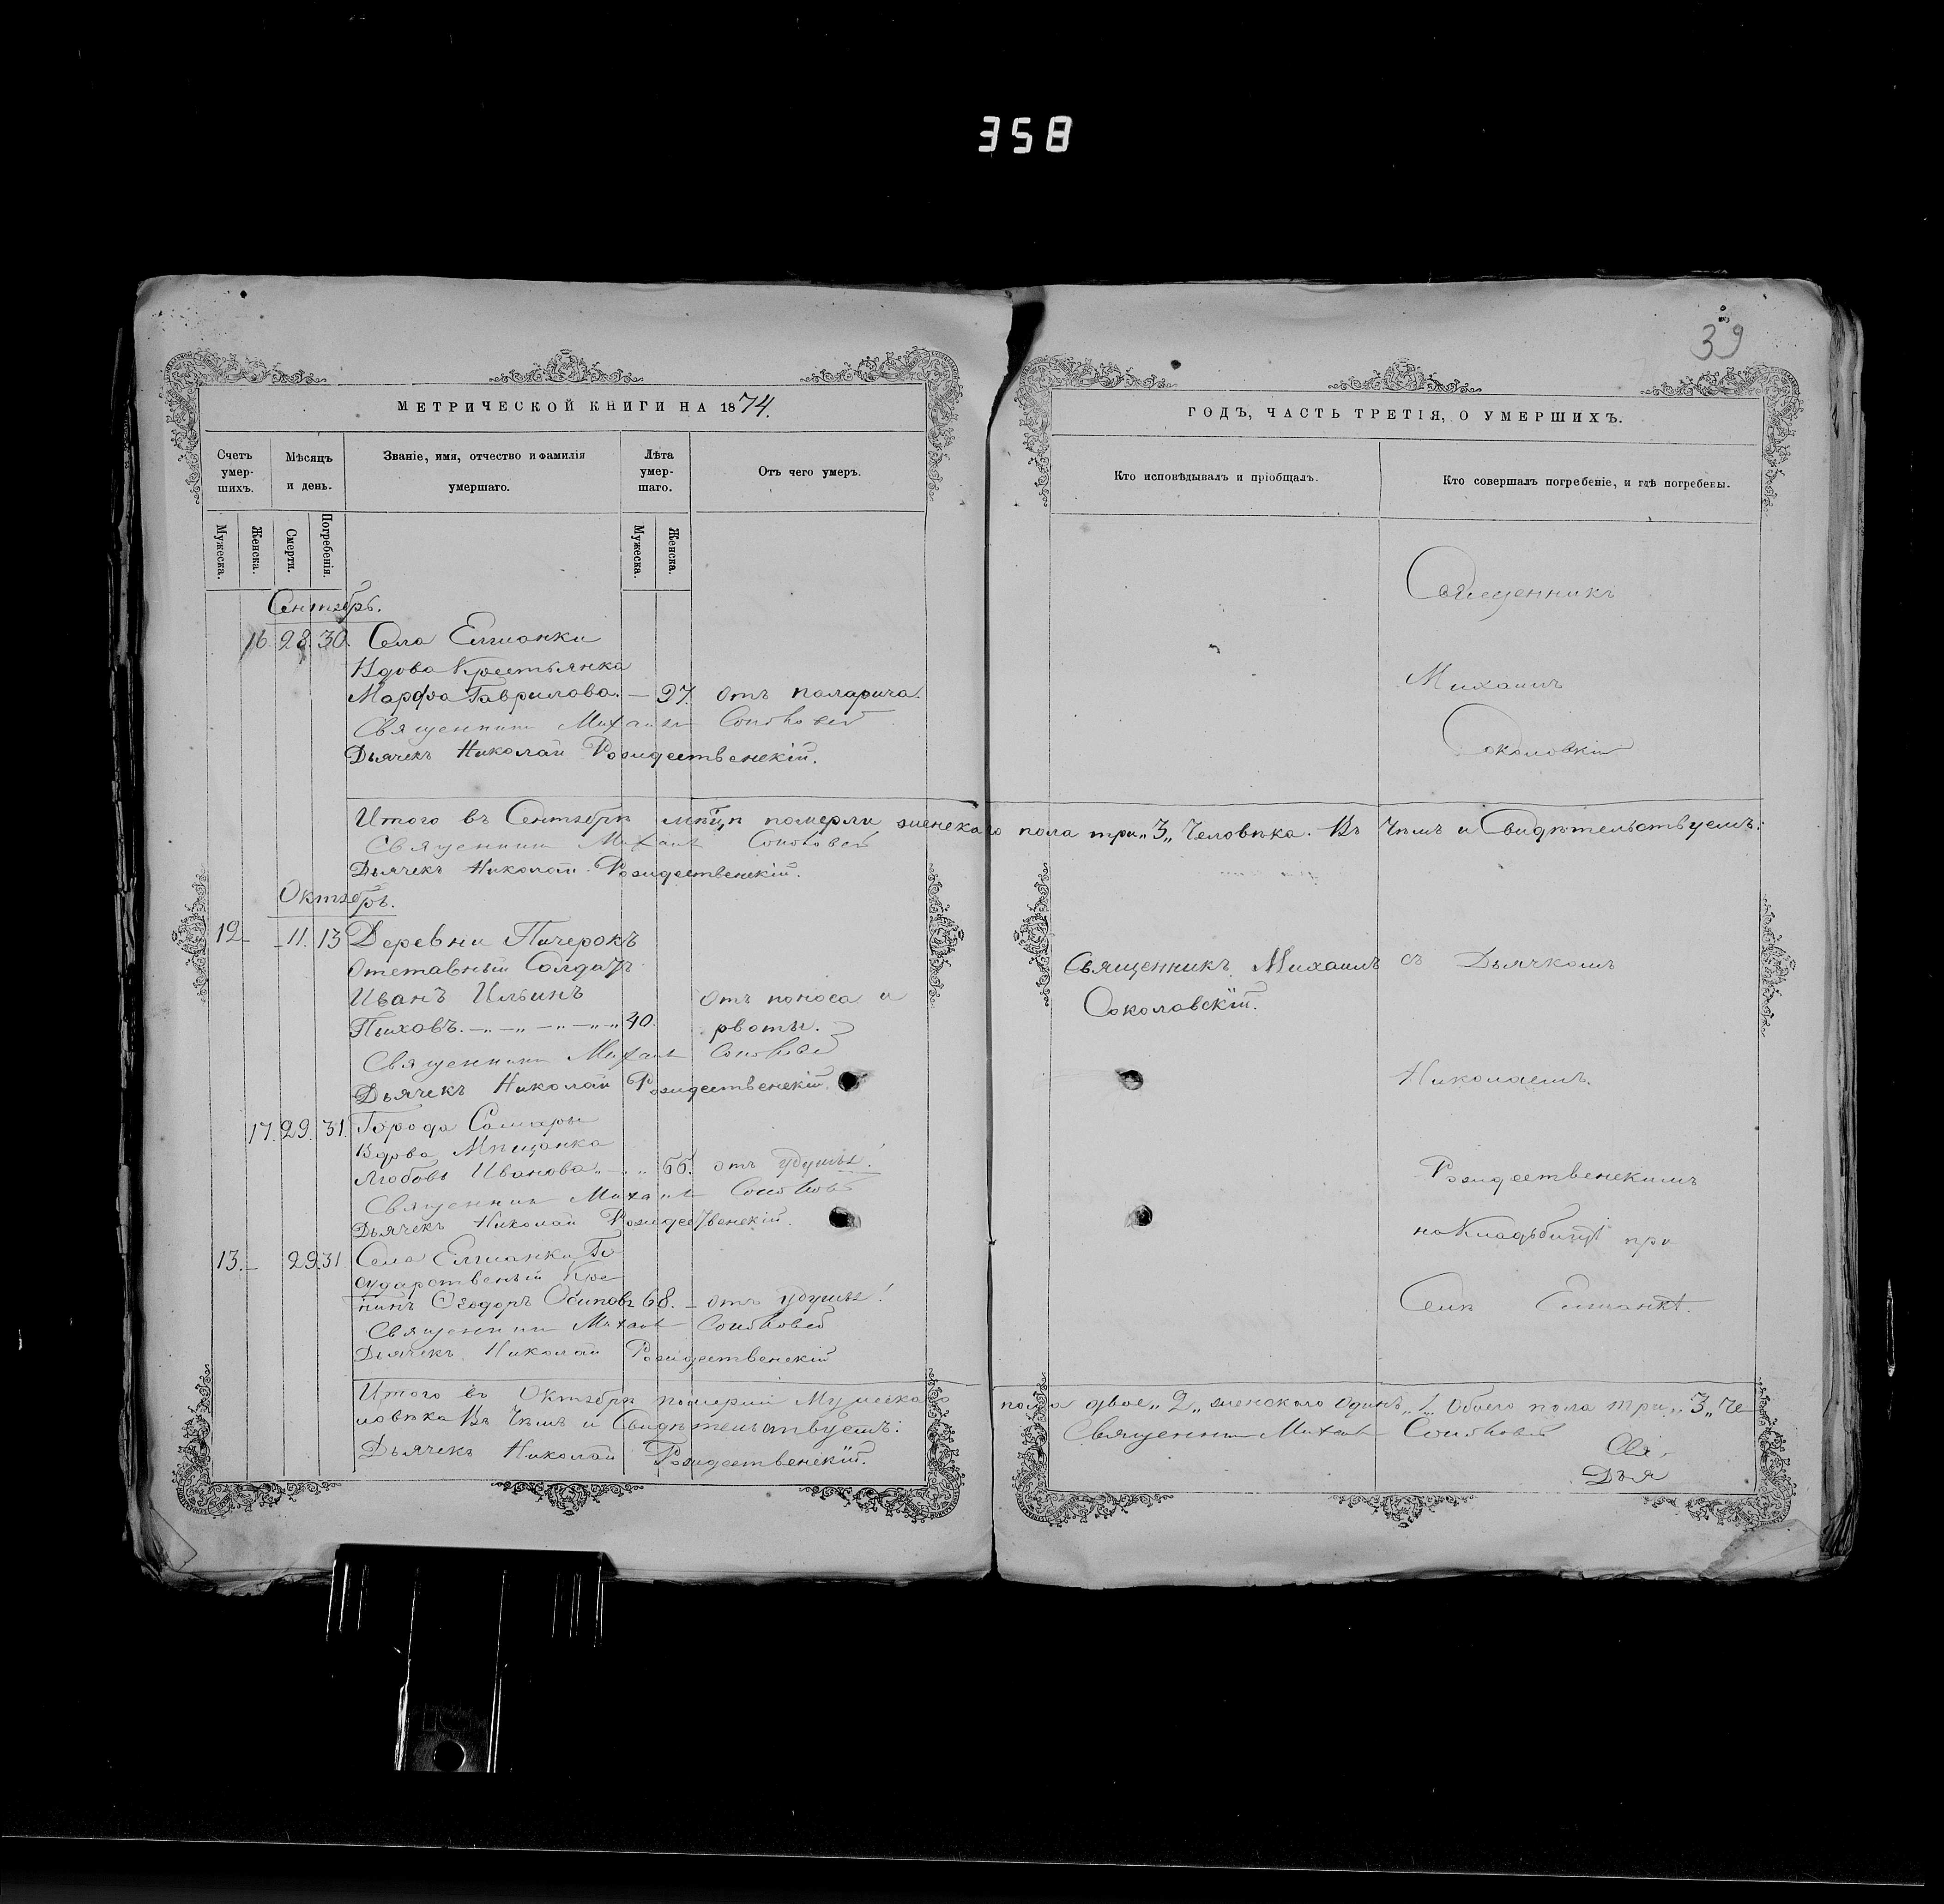 358
39
МЕТРИЧЕСКОЙ КНИГИ НА 1874.
Счетъ умер-шихъ.
Мѣсяцъ и день.
Званіе, имя, отчество и фамилія умершаго.
Лѣта умер-шаго.
Отъ чего умеръ.
Мужеска.
Женска.
Смерти.
Погребенія.
Мужеска.
Женска.
Сентябрь.
16. 28. 30. Села Елшанки
Вдова Крестьянка
Марфа Гаврилова. — 27. отъ паларича.
Священникъ Михаилъ Соколовскій
Дьячекъ Николай Рождественскій.
Итого въ Сентябрѣ мѣсцѣ померли женскаго пола три „3„ Человѣка. Въ Чемъ и Свидѣтельствуемъ:
Священникъ Михаилъ Соколовскій
Дьячекъ Николай Рождественскій.
Октябрь.
12 — 11. 13 Деревни Пичерокъ
Отставный Солдатъ
Иванъ Ильинъ отъ поноса и
Пыховъ. — „ — „ — „ — „ 40. рвоты.
Священникъ Михаилъ Соколовскій
Дьячекъ Николай Рождественскій.
17. 29. 31. Города Самары
Вдова Мѣщанка
Любовь Иванова „ — „ 66. отъ удушья!
Священникъ Михаилъ Соколовскій
Дьячекъ Николай Рождественскій.
13. — 29. 31. Села Елшанки Го
сударственый Кре
нинъ Ѳеодоръ Осиповъ 68. — отъ удушья!
Священникъ Михаилъ Соколовскій
Дьячекъ Николай Рождественскій
Итого въ Октябрѣ померли Мужеска
ловѣка Въ Чемъ и Свидѣтельствуемъ:
Дьячекъ Николай Рождественскій.
ГОДЪ, ЧАСТЬ ТРЕТІЯ, О УМЕРШИХЪ.
Кто исповѣдывалъ и пріобщалъ.
Кто совершалъ погребеніе, и гдѣ погребены.
Священникъ
Михаилъ
Соколовскій
Священникъ Михаилъ
Соколовскій.
съ Дьячкомъ
Николаемъ.
Рождественскимъ
на Кладбищѣ при
Селѣ Елшанкѣ.
пола двое „2„ женскаго одинъ „1„ Обоего пола три „3„ Че
Священникъ Михаилъ Соколовскій
Свя
Дья